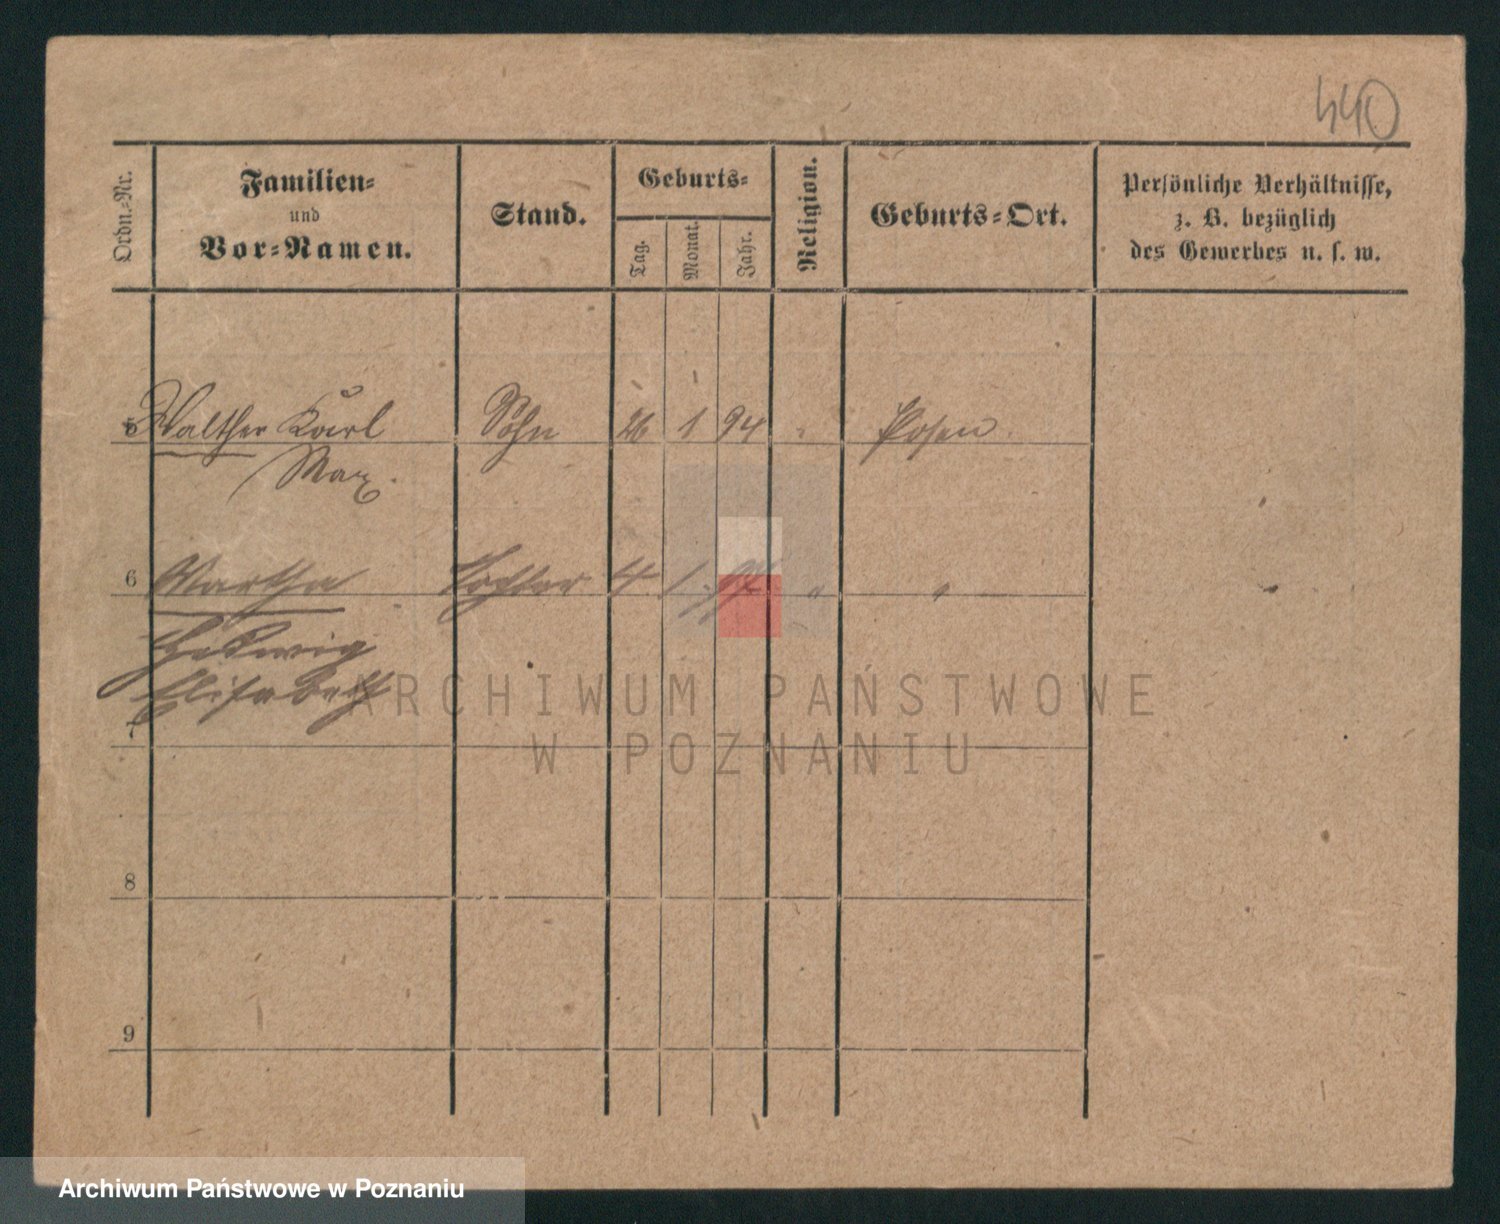 440
Ordn.-Nr.
Familien-
und
Vor-Namen.
Stand.
Geburts-
Tag.
Monat.
Jahr.
Religion.
Geburts-Ort.
Persönliche Verhältnisse,
z. B. bezüglich
des Gewerbes u. s. w.
5 Walther Karl Sohn 26 1 94 " Posen.
Max.
6 Martha Tochter 4 1. " "
Hedwig
Elisabeth
7
8
9
ARCHIWUM PAŃSTWOWE
W POZNANIU
Archiwum Państwowe w Poznaniu